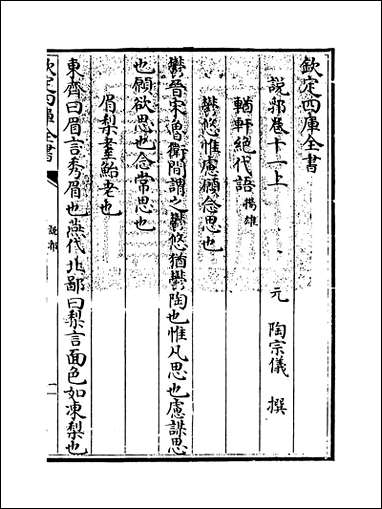 欽定四庫全書
說郛卷十一上
元 陶宗儀 撰
輶軒絕代語 揚雄
鬱悠惟慮願念思也
鬱晉宋魯衛間謂之鬱悠猶鬱陶也惟凡思也慮謀思
也願欲思也念常思也
眉梨耋鮐老也
東齊曰眉言秀眉也燕代北鄙曰梨言面色如凍梨也
欽定四庫全書
說郛